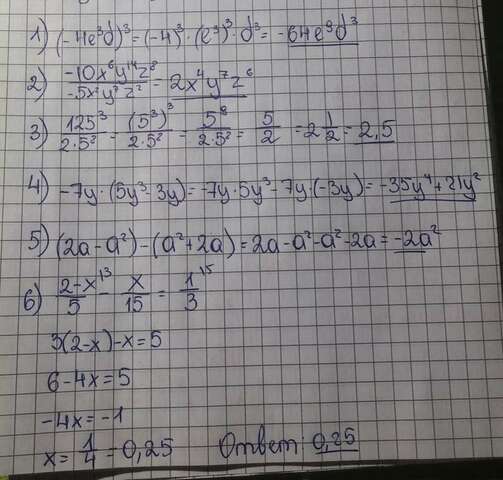 1) (-4e³d)³ = (-4)³ · (e³)³ · d³ = -64e⁹d³
2) -10x⁶y¹⁴z⁸ / -5x²y⁷z² = 2x⁴y⁷z⁶
3) 125³ / 2·5⁸ = (5³)³ / 2·5⁸ = 5⁹ / 2·5⁸ = 5/2 = 2 1/2 = 2,5
4) -7y · (5y³ - 3y) = -7y · 5y³ - 7y · (-3y) = -35y⁴ + 21y²
5) (2a - a²) - (a² + 2a) = 2a - a² - a² - 2a = -2a²
6) 2-x/5 \3 - x/15 = 1/3 \15
3(2-x) - x = 5
6 - 4x = 5
-4x = -1
x = 1/4 = 0,25 Ответ: 0,25